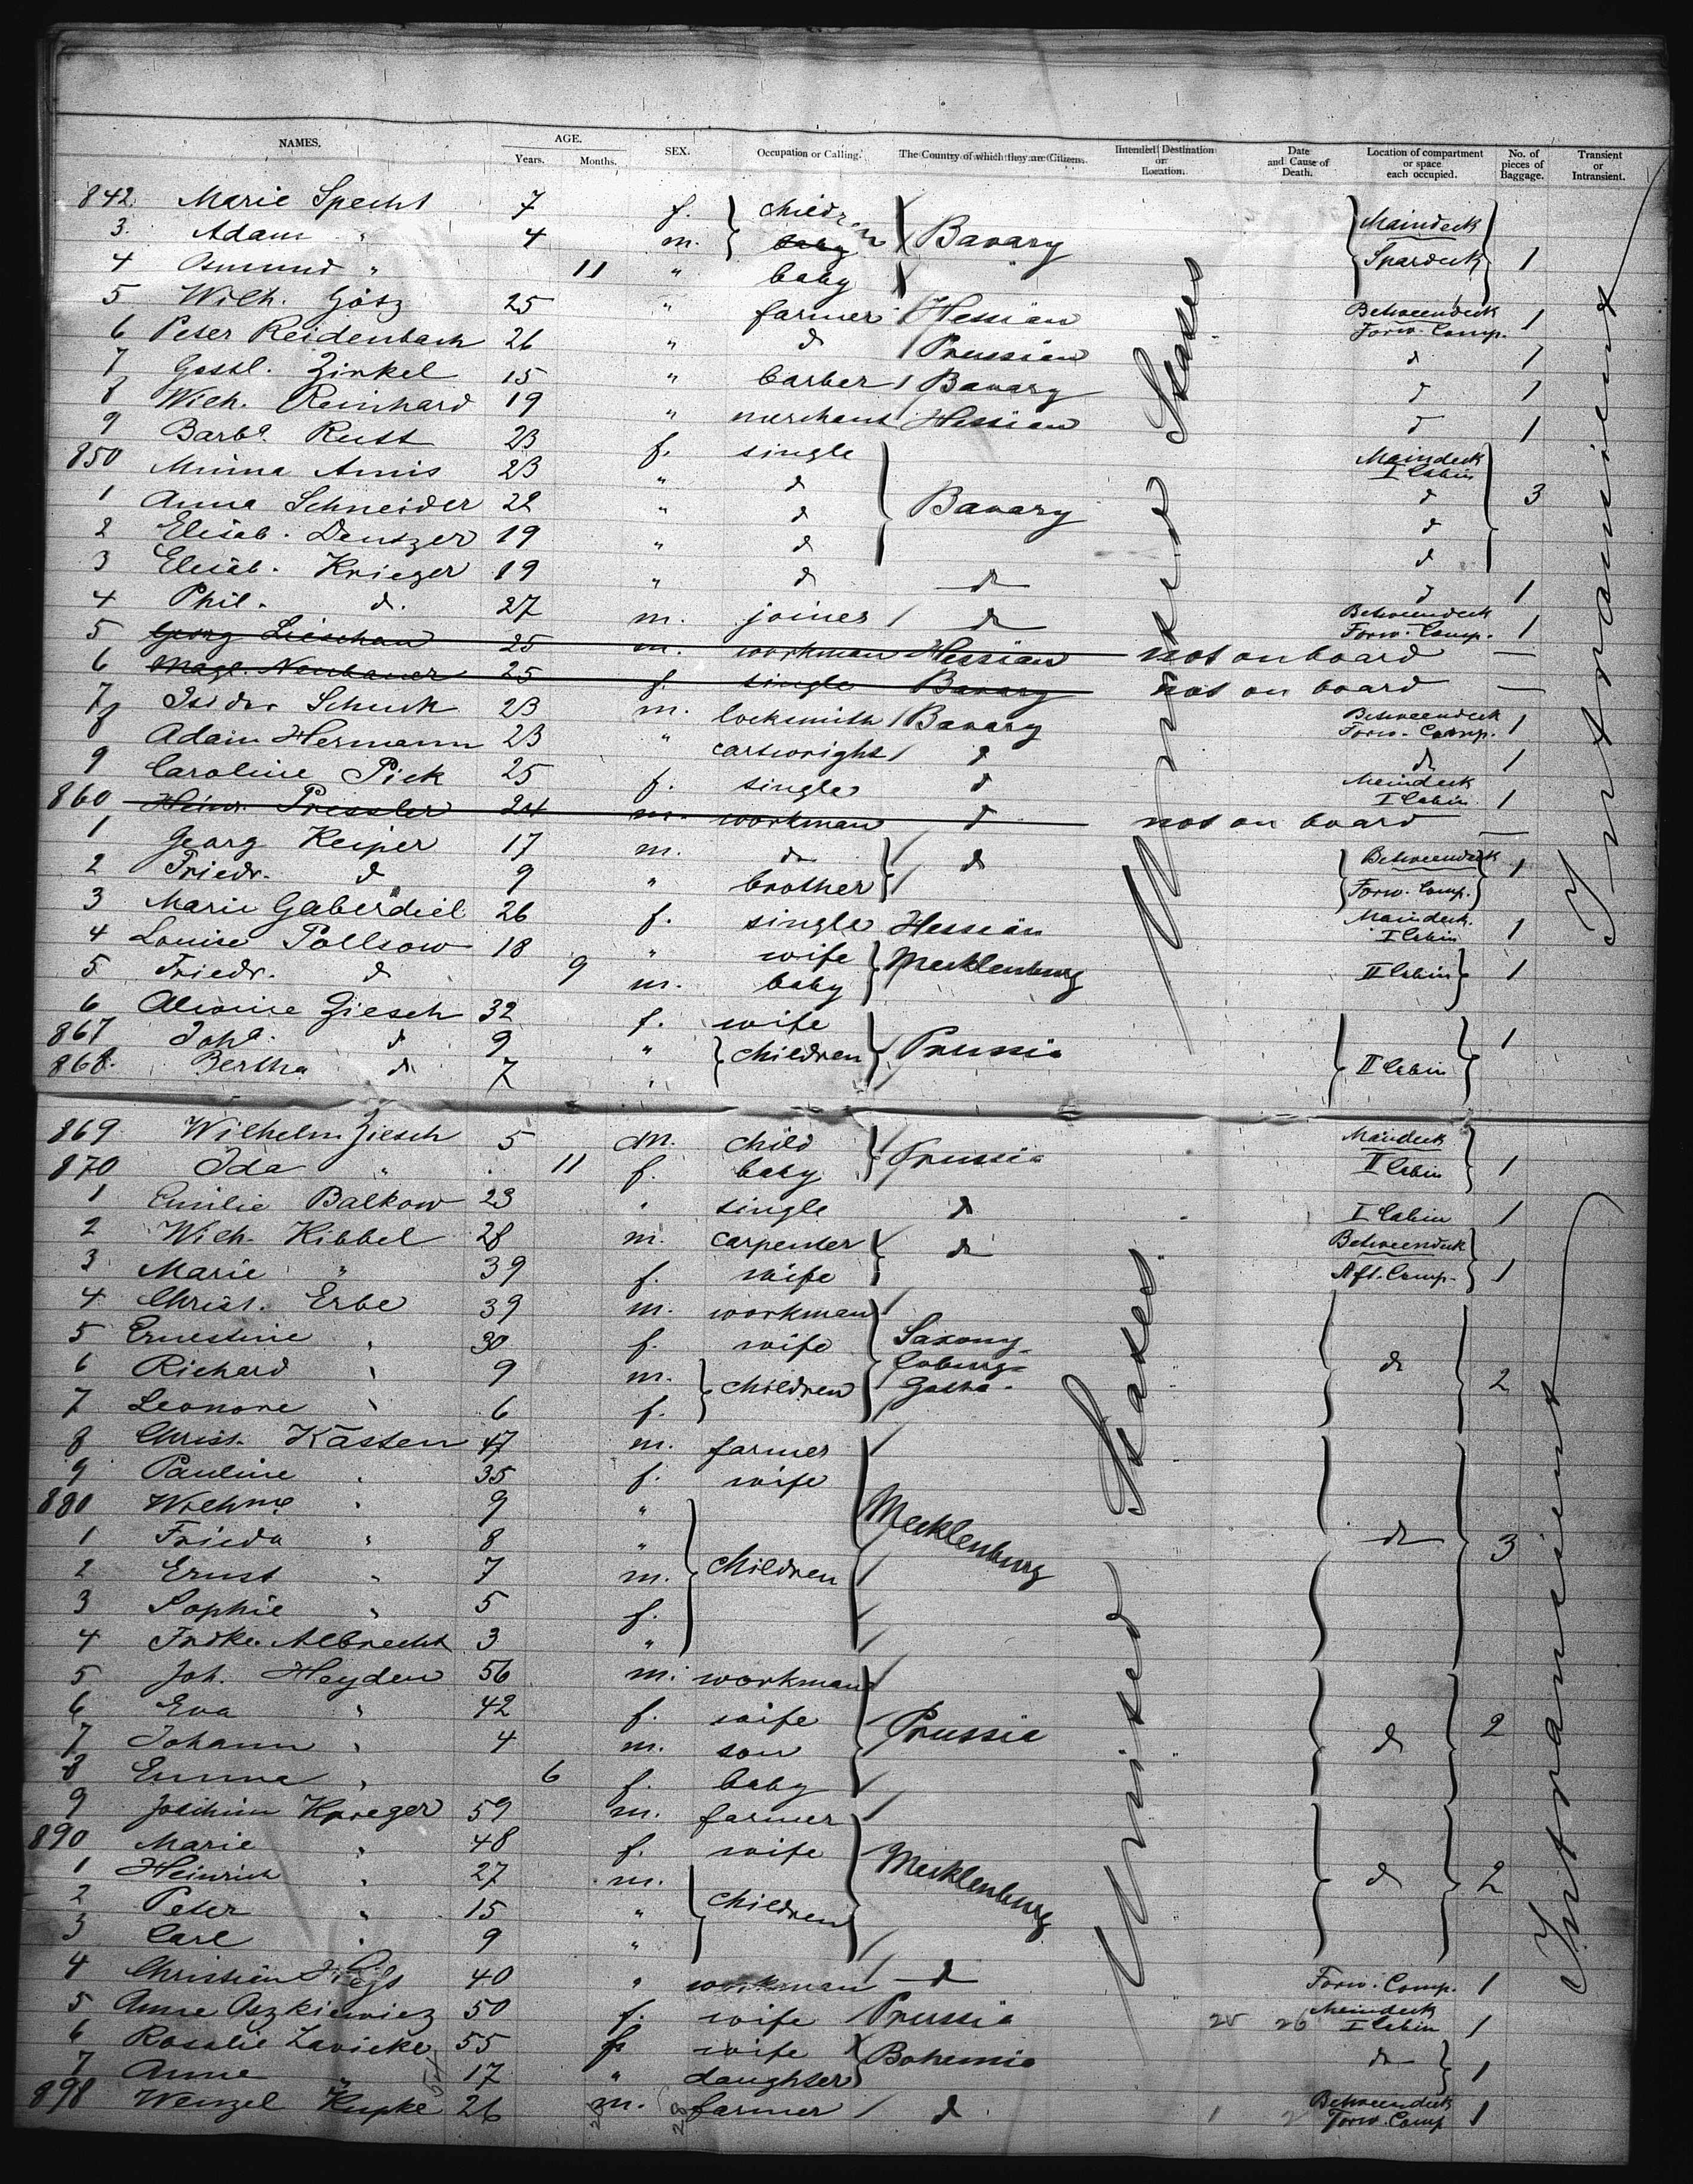 NAMES. AGE. Years. Months. SEX. Occupation or Calling. The Country of which they are Citizens. Intended Destination or Location. Date and Cause of Death. Location of compartment or space each occupied. No. of pieces of Baggage. Transient or Intransient.
842 Marie Specht 7 f. children Maindeck
3. Adam " 4 m. baby Bavary Spardeck 1
4 " 11 " baby
5 Wilh. Götz 25 " farmer Hessian Betweendeck Forw. Comp. 1
6 Peter Reidenbach 26 " d Prussian d 1
7 Gottl. Zinkel 15 " barber Bavary d 1
8 Wilh. Reinhard 19 " merchant Hessian d 1
9 Barba. Rutt 23 f. single Maindeck I Cabin
850 Minna Amis 23 " d d 3
1 Anna Schneider 22 " d Bavary d
2 Elisab. Dentzer 19 " d d
3 Elisab. Krieger 19 " d d d 1
4 Phil. d. 27 m. joiner d Betweendeck Forw. Comp. 1
5 Georg Lieschan 25 m. workman Hessian not on board —
6 Magt. Neubauer 25 f. single Bavary not on board —
7 Isidor Schuck 23 m. locksmith Bavary Betweendeck Forw. Comp. 1
8 Adam Hermann 23 " cartwright d d 1
9 Caroline Pick 25 f. single d Maindeck I Cabin 1
860 Heinr. Pressler 24 m. workman d not on board —
1 Georg Keiper 17 m. d d Betweendeck 1
2 Friedr. d 9 " brother Forw. Comp.
3 Marie Gaberdiel 26 f. single Hessian Maindeck I Cabin 1
4 Louise Pollsow 18 " wife Mecklenburg II Cabin 1
5 Friedr. d 9 m. baby
6 Alwine Ziesch 32 f. wife 1
867 Joha. d 9 " children Prussia II Cabin
868. Bertha d 7 "
United States
Intransient
869 Wilhelm Ziesch 5 m. child Prussia Maindeck II Cabin 1
870 Ida " 11 f. baby
1 Emilie Balkow 23 " single d I Cabin 1
2 Wilh. Kibbel 28 m. carpenter d Betweendeck
3 Marie " 39 f. wife Aft. Comp. 1
4 Christ. Erbe 39 m. workman
5 Ernestine " 30 f. wife Saxony-
6 Richard " 9 m. children Coburg-Gotha. d 2
7 Leonore " 6 f.
8 Christ. Kästen 47 m. farmer
9 Pauline " 35 f. wife
880 Wilhme " 9 " Mecklenburg
1 Frieda " 8 " d 3
2 Ernst " 7 m. children
3 Sophie " 5 f.
4 Fridke. Albrecht 3 "
5 Joh. Heyden 56 m. workman
6 Eva " 42 f. wife Prussia d 2
7 Johann " 4 m. son
8 Emma " 6 f. baby
9 Joachim Kroeger 59 m. farmer
890 Marie " 48 f. wife Mecklenburg
1 Heinrich " 27 m. d 2
2 Peter " 15 " children
3 Carl " 9 "
4 Christian 40 " workman d Forw. Comp. 1
5 Anne Aszkiewicz 50 f. wife Prussia 25 26 Maindeck I Cabin 1
6 Rosalie Zavicke 55 f. wife Bohemia d
7 Anne " 17 " daughter 1
898 Wenzel Hupke 26 m. farmer d Betweendeck Forw. Comp 1
United States
Intransient